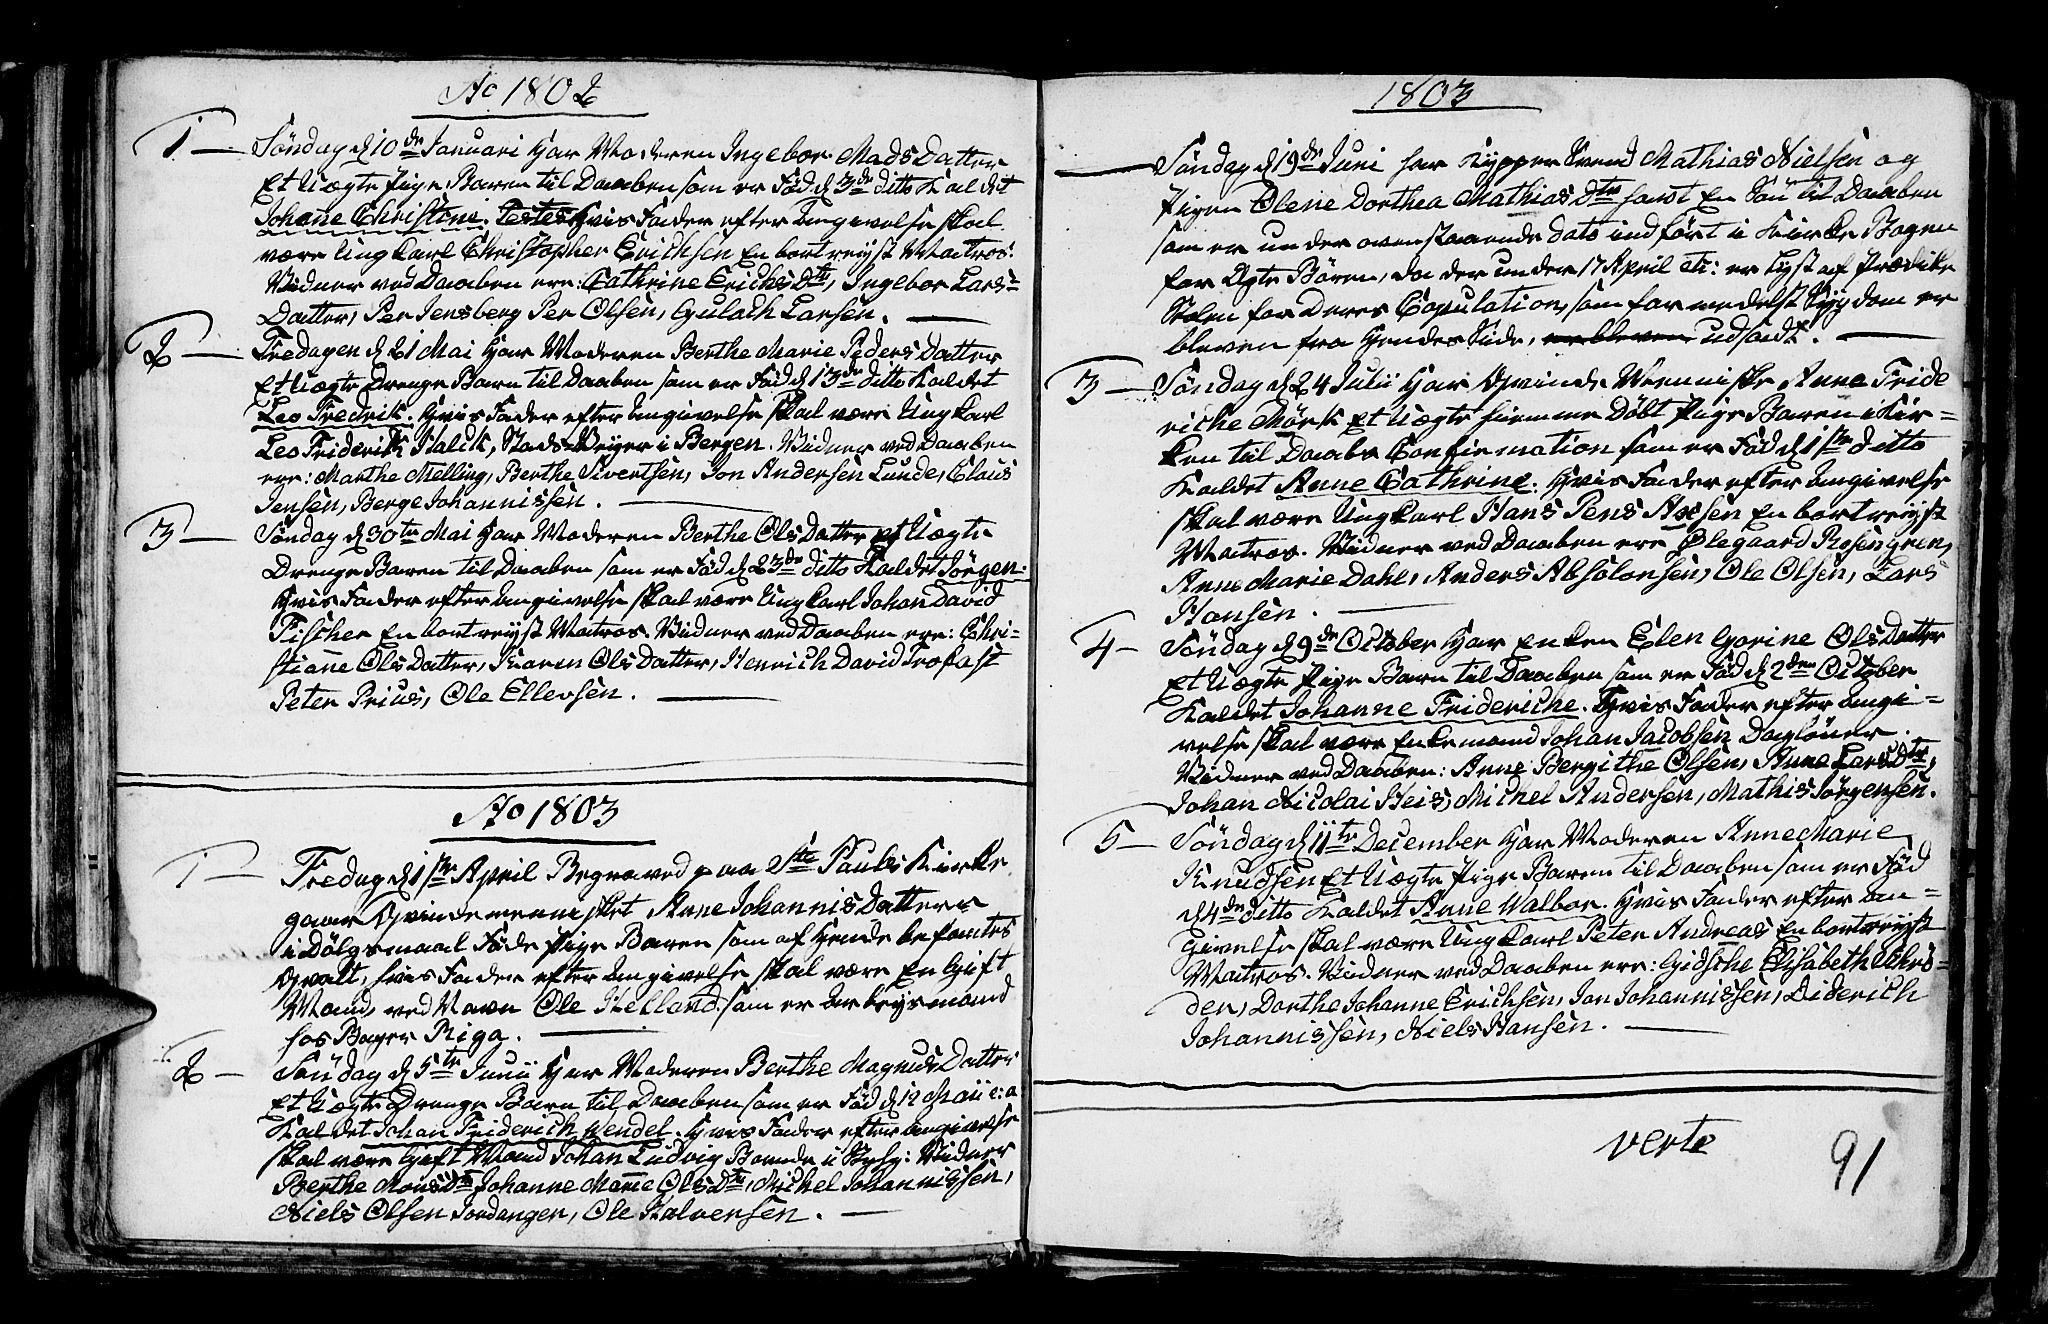 Ao 1802
1 — Søndag d 10de Januari har Moderen Ingebor Mads Datter
Et Uægte Pige Baren til Daaben som er Fød d 3de ditto Kaldet
Johanne Christine. Testes Hvis Fader efter Angivelse skal
være Ung Karl Christopher Erichsen En bortreyst Matros.
Vidner ved Daaben ere: Cathrine Erichs Dtr, Ingebor Lars-
Datter, Per Jensberg Per Olsen, Gulach Larsen. —
2 — Fredagen d 21 Mai har Moderen Berthe Marie Peders Datter
Et Uægte Drenge Barn til Daaben som er Fød d 13de ditto Kaldet
Leo Fredrik. Hvis Fader efter Angivelse skal være Ung Karl
Leo Friderik Kalck, Stads i Bergen. Vidner ved Daaben
ere: Marthe Melling, Berthe Sivertsen, Jon Andersen Lunde, Claus
Jensen, Berge Johannissen. —
3 — Søndag d 30te Mai har Moderen Berthe Ols Datter et Uægte
Drenge Baren til Daaben som er Fød d 23de ditto Kaldet Jørgen.
Hvis Fader efter Angivelse skal være Ung Karl Johan David
Fischer En bortreyst Matros. Vidner ved Daaben ere: Chri-
stiane Ols Datter, Karen Ols Datter, Henrich David Trofast
Peter Prius, Ole Ellersen. —
Ao 1803
1 — Fredag d 1ste April Begraved paa Ste Pauls Kirke
gaar Qvindemennisket Anne Johannis Datters
i Dølgsmaal Føde Pige Baren som af Hende befantes
qvalt, hvis Fader efter Angivelse skal være En Gift
Mand, ved Navn Ole Helland som er Arbeysmand
hos Bager Riga. —
2 — Søndag d 5te Junii har Moderen Berthe Magnus Datter
Et Uægte Drenge Barn til Daaben som er Fød d 12 Maii e: a
Kaldet Johan Friderich Wendel. Hvis Fader efter Angivelse
skal være Gift Mand Johan Ludvig Vidner
Berthe Mons Dtr Johanne Marie Ols Dtr, Michel Johannissen,
Niels Olsen Sordanger, Ole Halversen. —
1803
— Søndag d 19de Juni har Kypper Svend Mathias Nielsen og
Pigen Olene Dorthea Mathias Dtr havt En Søn til Daaben
som er under ovenstaaende dato indført i Kirke Bogen
for Ægte Børen, da der under 17 April etc: er lyst af Prædike
Stolen for Deres Copulation, som formedelst Sygdom er
bleven fra Hendes Side, er bleven udsadt. —
3 — Søndag d 24 Julii har Qvinde Menniske Anne Fride
riche Mørk Et Uægte hiemme Døbt Pige Baren i Kir-
ken til Daabs Confirmation som er Fød d 1ste ditto
Kaldet Anne Cathrine. Hvis Fader efter Angivelse
skal være Ung Karl Hans Pens Assen En bortreyst
Matros. Vidner ved Daaben ere Ølegaard Rosengren,
Anne Marie Dahl, Anders Absolonsen, Ole Olsen, Lars
Hansen. —
4 — Søndag d 9de October har Enken Elen Gorine Ols Datter
Et Uægte Pige Barn til Daaben som er Fød d 2den October
Kaldet Johanne Frideriche. Hvis Fader efter Angi-
velse skal være Enkemand Johan Jacobsen Dagløner.
Vidner ved Daaben: Anne Bergithe Olsen, Anne Lars Dtr,
Johan Nicolai Heis, Michel Andersen, Mathis Jørgensen.
5 — Søndag d 11te December har Moderen Anne Marie
Knudsen Et Uægte Pige Baren til Daaben som er Fød
d 4de ditto Kaldet Anne Walbor. Hvis Fader efter An-
givelse skal være Ung Karl Peter Andreas En bortreyst
Matros. Vidner ved Daaben ere: Gidsche Elisabeth Schrø-
der, Dorthe Johanne Erichsen, Jan Johannissen, Diderich
Johannissen, Niels Hansen. —
verte
91